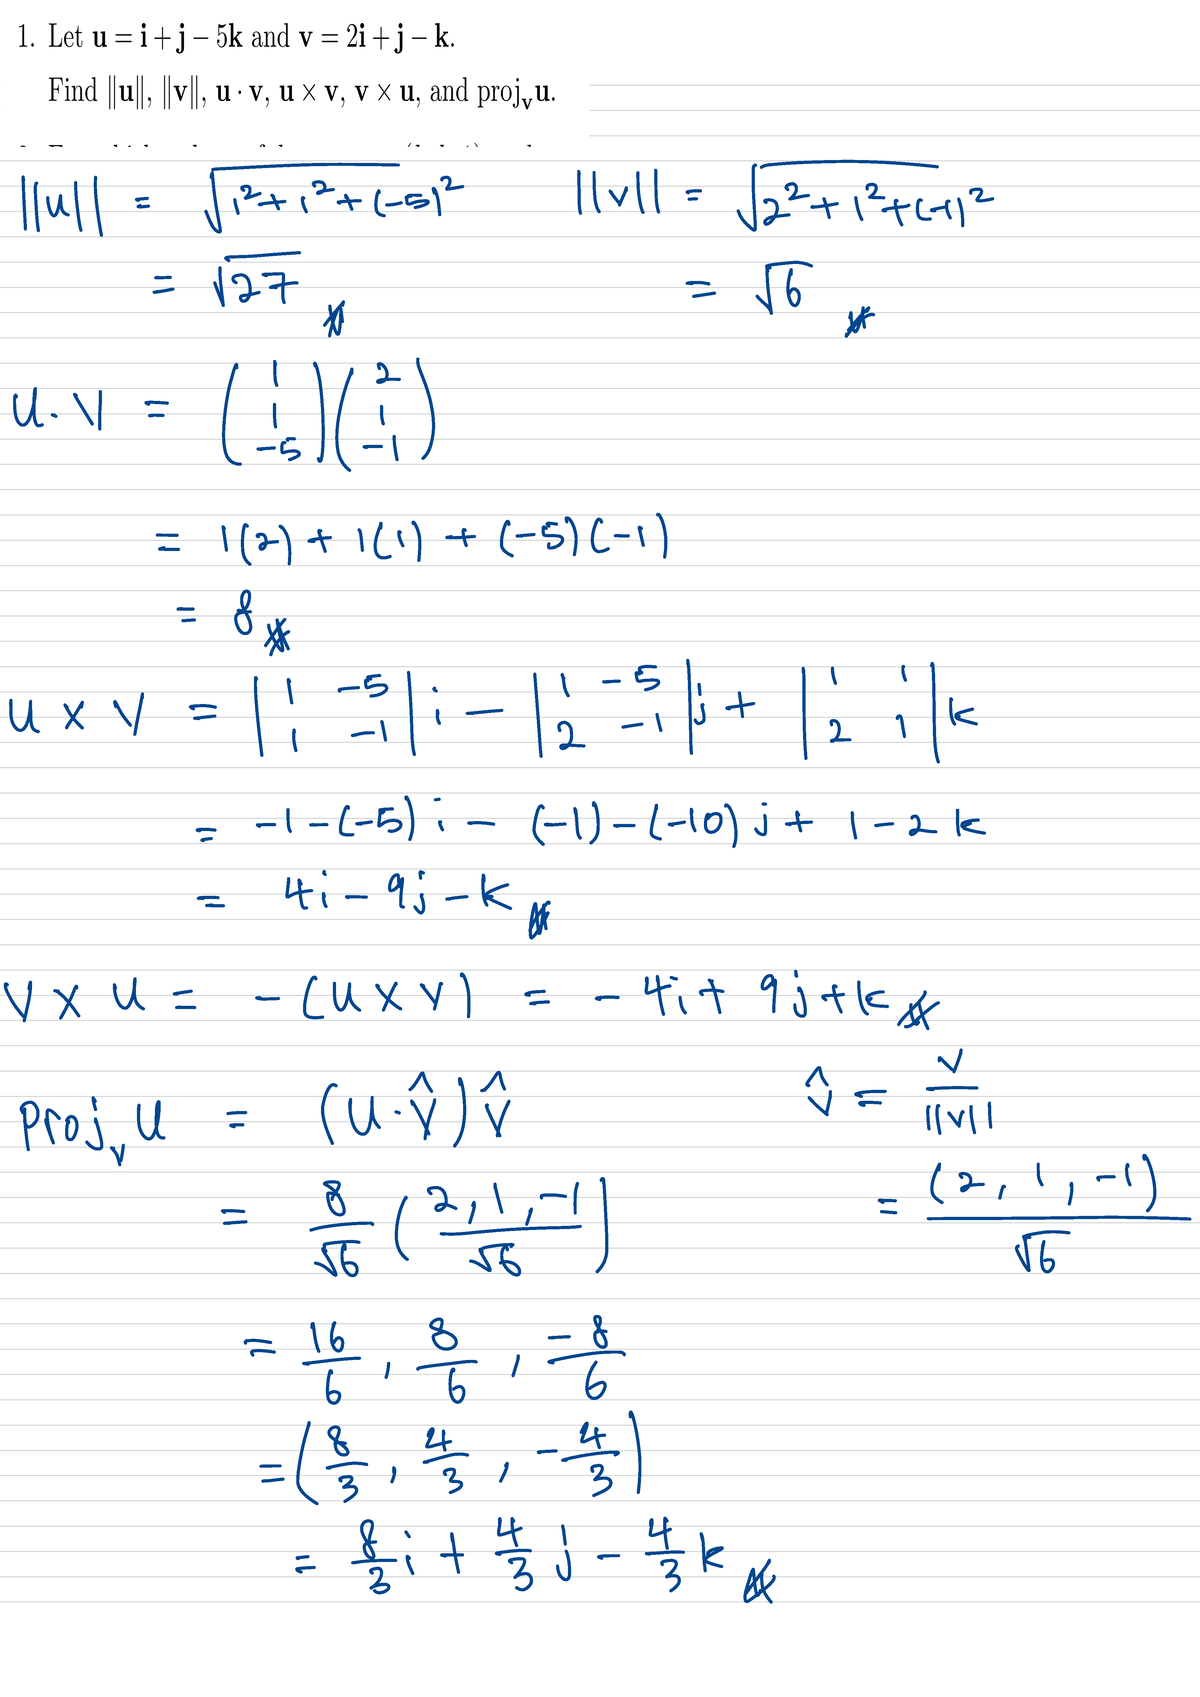 1. Let u = i + j − 5k and v = 2i + j − k.
Find ||u||, ||v||, u · v, u × v, v × u, and projᵥu.
||u|| = √(1² + 1² + (-5)²)   ||v|| = √(2² + 1² + (-1)²)
= √27   = √6
u · v = (1 1 -5)(2 1 -1)
= 1(2) + 1(1) + (-5)(-1)
= 8
u × v = |1 -5; 1 -1| i − |1 -5; 2 -1| j + |1 1; 2 1| k
= -1-(-5) i − (-1)-(-10) j + 1-2 k
= 4i − 9j − k
v × u = −(u × v) = −4i + 9j + k
Projᵥ u = (u · v̂) v̂   v̂ = v/||v||
= 8/√6 ((2, 1, -1)/√6)   = (2, 1, -1)/√6
= 16/6, 8/6, -8/6
= (8/3, 4/3, -4/3)
= 8/3 i + 4/3 j − 4/3 k